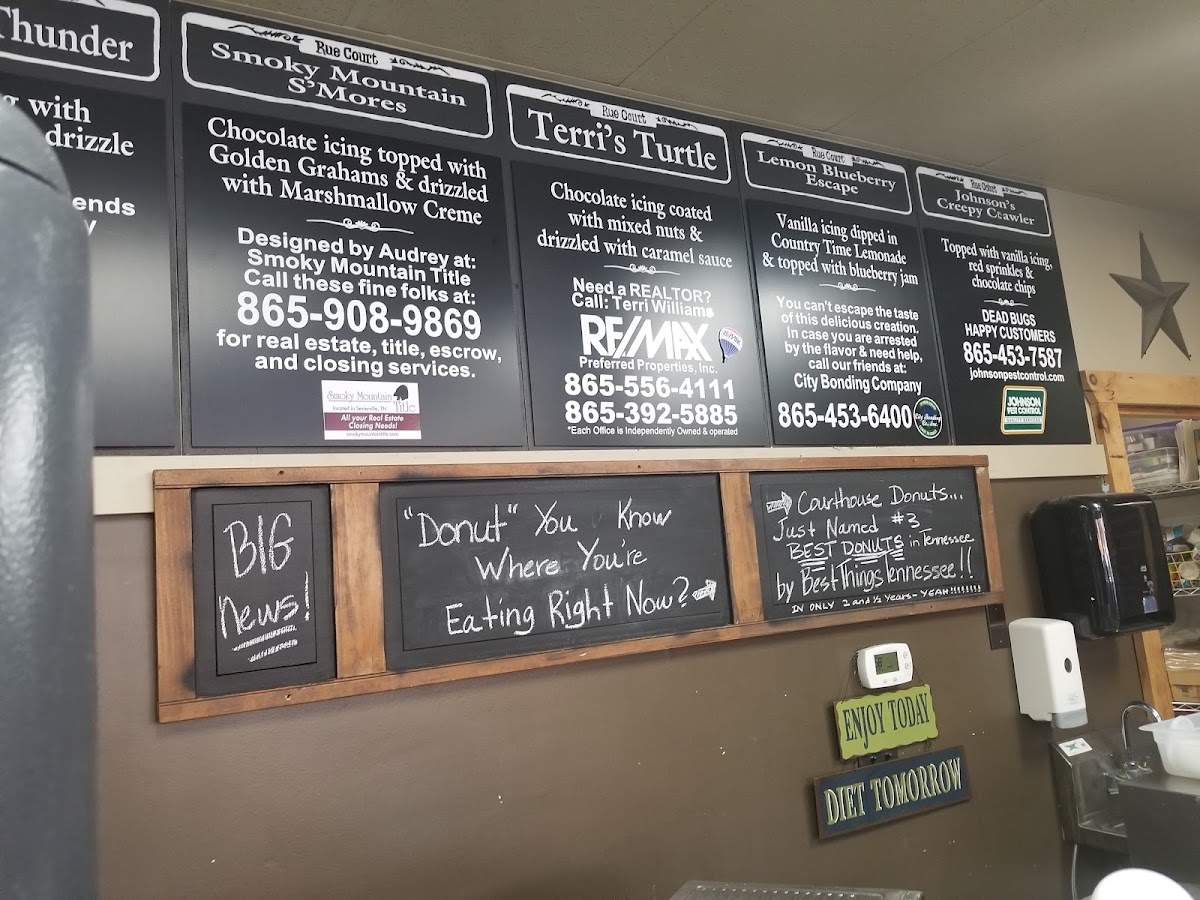 Thunder
with
drizzle
ends
Rue Court
Smoky Mountain
S'Mores
Chocolate icing topped with
Golden Grahams & drizzled
with Marshmallow Creme
Designed by Audrey at:
Smoky Mountain Title
Call these fine folks at:
865-908-9869
for real estate, title, escrow,
and closing services.
Smoky Mountain
Title
located in Sevierville, TN
All your Real Estate
Closing Needs!
smokymountaintitle.com
Rue Court
Terri's Turtle
Chocolate icing coated
with mixed nuts &
drizzled with caramel sauce
Need a REALTOR?
Call: Terri Williams
RE/MAX
Preferred Properties, Inc.
865-556-4111
865-392-5885
*Each Office is Independently Owned & operated
Rue Court
Lemon Blueberry
Escape
Vanilla icing dipped in
Country Time Lemonade
& topped with blueberry jam
You can't escape the taste
of this delicious creation.
In case you are arrested
by the flavor & need help,
call our friends at:
City Bonding Company
865-453-6400
City Bonding
Co., Inc.
Rue Court
Johnson's
Creepy Crawler
Topped with vanilla icing,
red sprinkles &
chocolate chips
DEAD BUGS
HAPPY CUSTOMERS
865-453-7587
johnsonpestcontrol.com
JOHNSON
PEST CONTROL
BIG
News!
"Donut" You Know
Where You're
Eating Right Now?
Courthouse Donuts...
Just Named #3
BEST DONUTS in Tennessee
by BestThingsTennessee!!
IN ONLY 2 and ½ years - YEAH!!!!!!!!
ENJOY TODAY
DIET TOMORROW